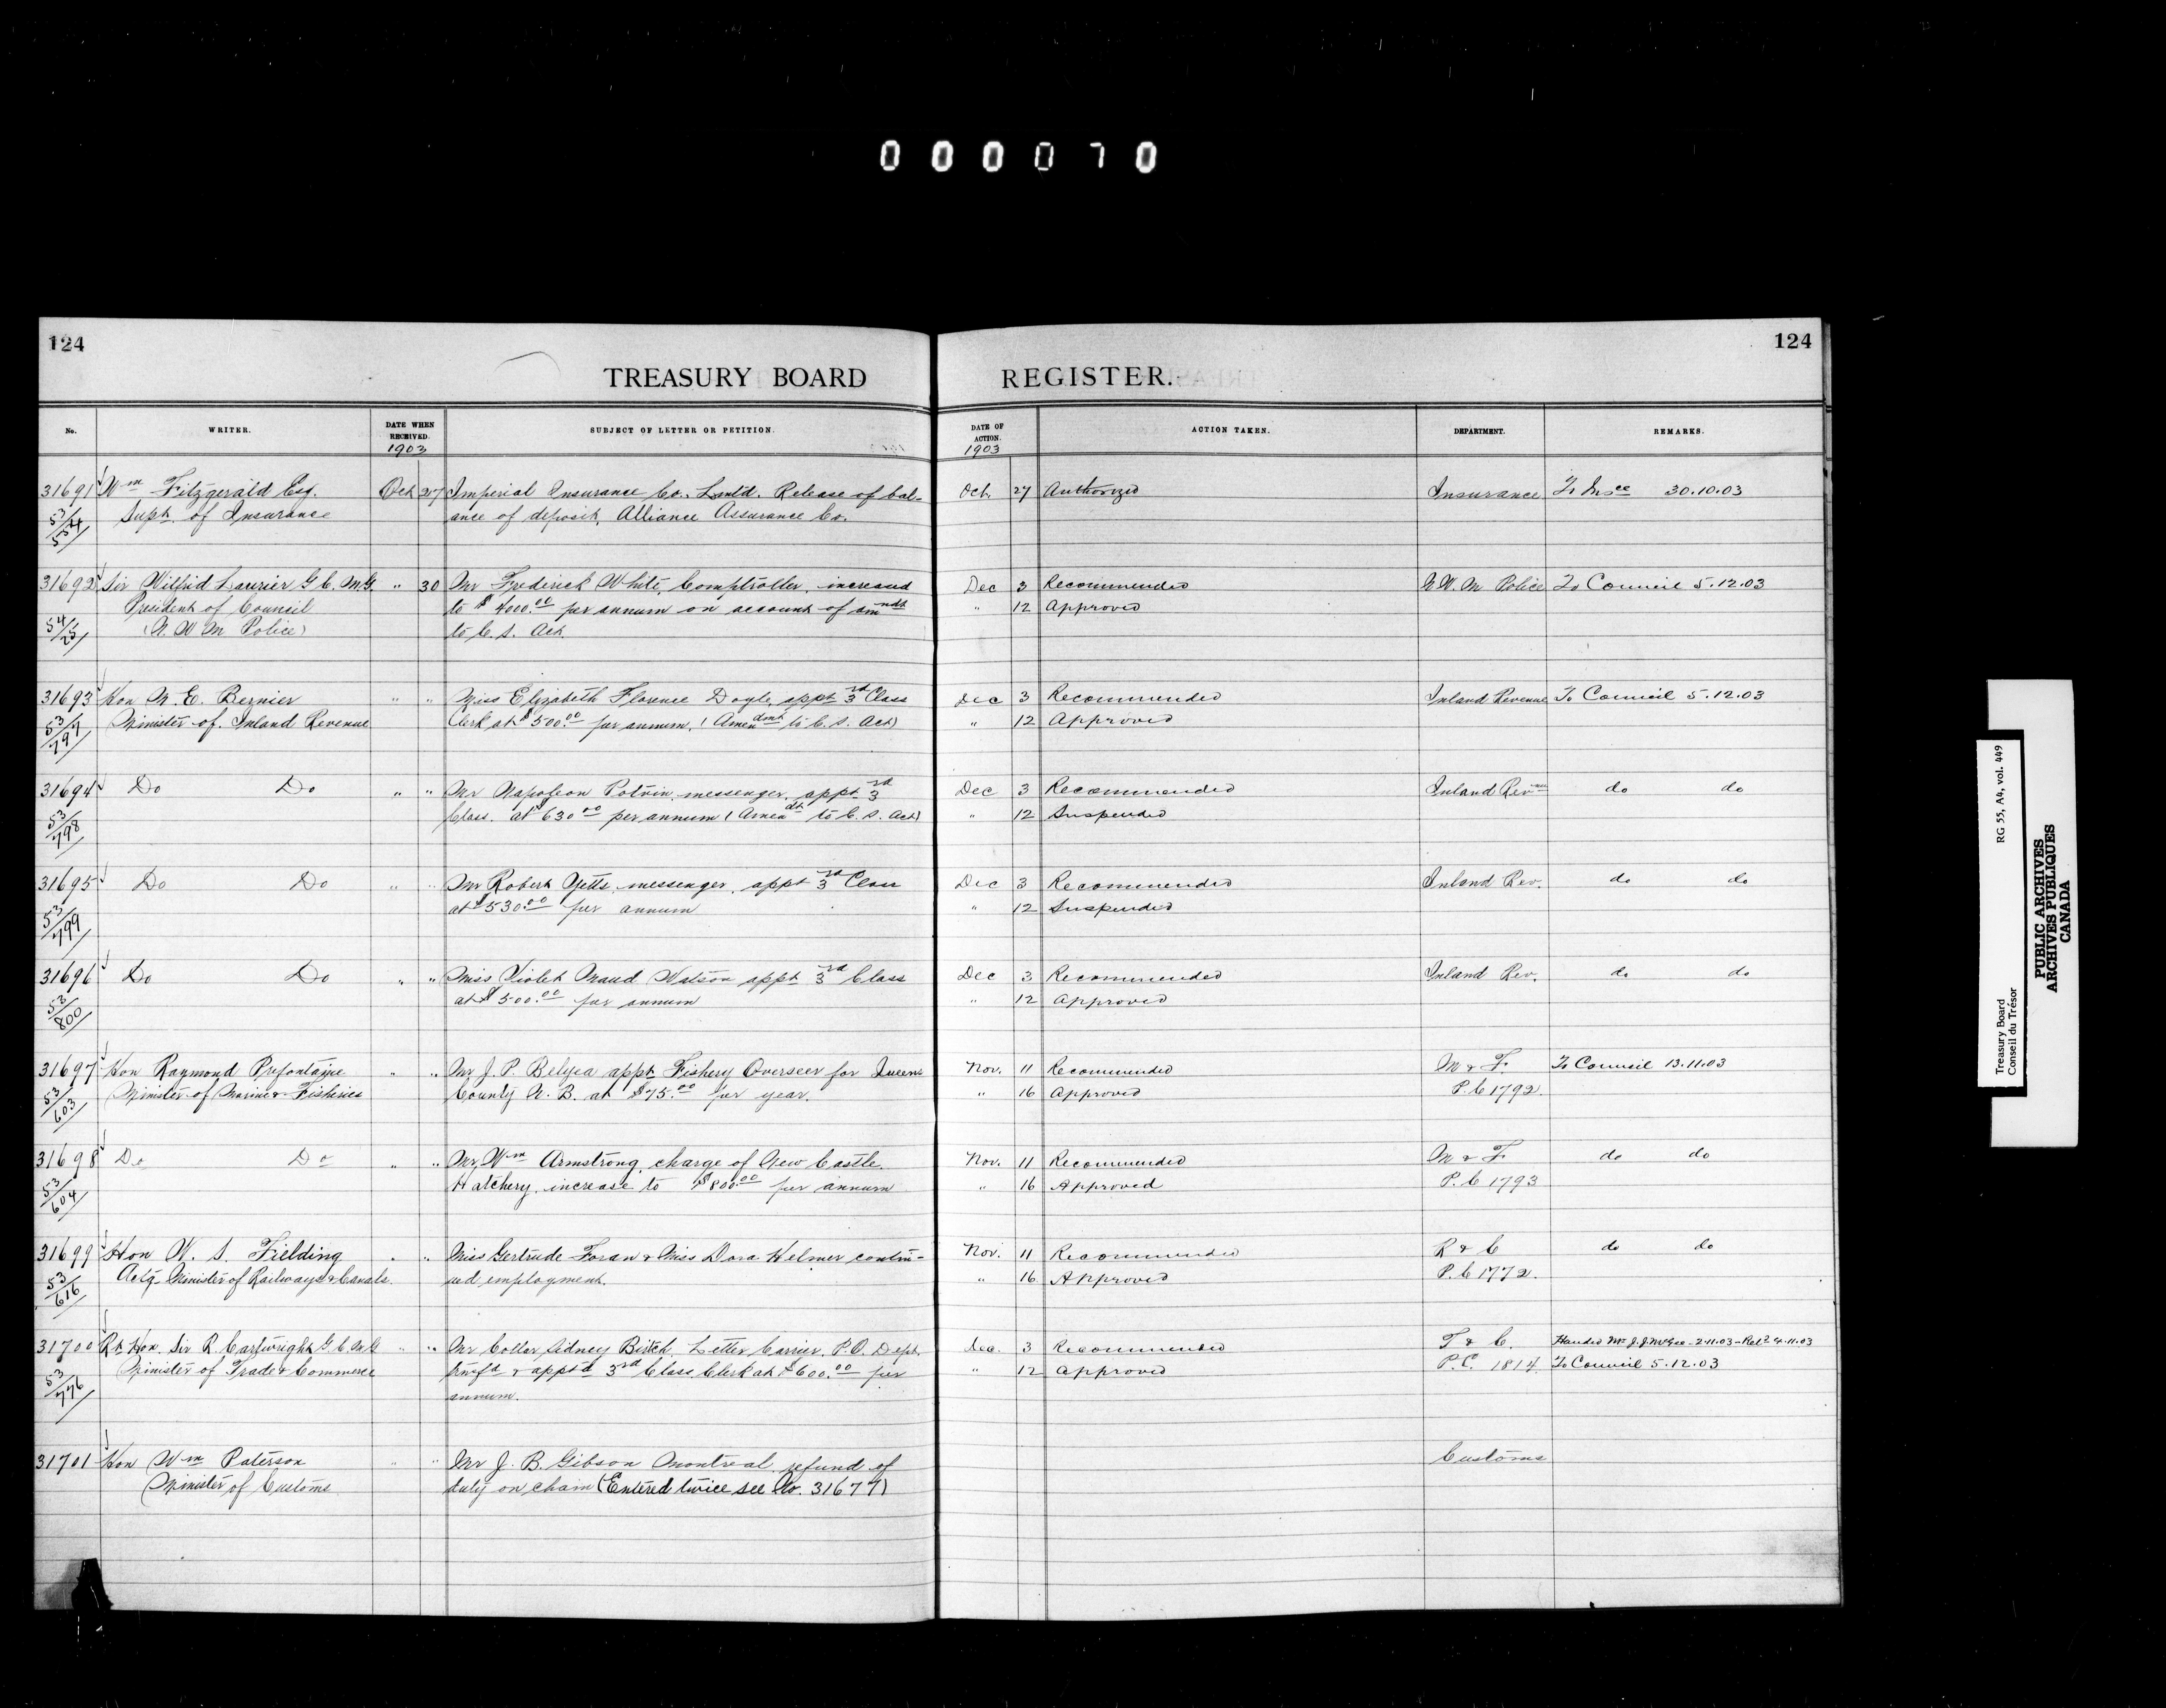 000070
124
124
TREASURY BOARD REGISTER.
No. WRITER. DATE WHEN RECEIVED. SUBJECT OF LETTER OR PETITION. DATE OF ACTION. ACTION TAKEN. DEPARTMENT. REMARKS.
1903 1903
31691 Wm Fitzgerald Esq. Oct 27 Imperial Insurance Co. Lmtd. Release of bal- Oct. 27 Authorized Insurance To Insce 30.10.03
53/54 Supt. of Insurance ance of deposit, Alliance Assurance Co.
31692 Sir Wilfrid Laurier G.C.M.G. " 30 Mr Frederick White, Comptroller, increased Dec 3 Recommended N.W.M Police To Council 5.12.03
President of Council to $4000.00 per annum on account of amndt " 12 Approved
54/25 (N.W.M Police) to C.S. Act.
31693 Hon M.E. Bernier " " Miss Elizabeth Florence Doyle, appt 3rd Class Dec 3 Recommended Inland Revenue To Council 5.12.03
53/797 Minister of Inland Revenue Clerk at $500.00 per annum. (Amendmt to C.S. Act) " 12 Approved
31694 Do Do " " Mr Napoleon Potvin, messenger, appt 3rd Dec 3 Recommended Inland Revenue do do
53/798 Class. at $630.00 per annum (Amendt to C.S. Act) " 12 Suspended
31695 Do Do " " Mr Robert Yetts, messenger, appt 3rd Class Dec 3 Recommended Inland Rev. do do
53/799 at $530.00 per annum " 12 Suspended
31696 Do Do " " Miss Violet Maud Watson appt 3rd Class Dec 3 Recommended Inland Rev. do do
53/800 at $500.00 per annum " 12 Approved
31697 Hon Raymond Prefontaine " " Mr J.P. Belyea appt Fishery Overseer for Queens Nov. 11 Recommended M & F. To Council 13.11.03
53/603 Minister of Marine & Fisheries County N.B. at $75.00 per year. " 16 Approved P.C 1792.
31698 Do Do " " Mr Wm Armstrong, charge of New Castle Nov. 11 Recommended M & F. do do
53/604 Hatchery, increase to $800.00 per annum " 16 Approved P.C 1793
31699 Hon W.S. Fielding " " Miss Gertrude Foran & Miss Dora Helmer contin- Nov. 11 Recommended R & C do do
53/616 Actg. Minister of Railways & Canals. ued employment. " 16 Approved P.C 1772.
31700 Rt Hon. Sir R Cartwright G.C.M.G " " Mr Coller Sidney Birtch, Letter Carrier, P.O. Dept. Dec. 3 Recommended T & C. Handed Mr J.J. McGee - 2.11.03 - Retd 4.11.03
53/776 Minister of Trade & Commerce trnsfd & apptd 3rd Class Clerk at $600.00 per " 12 Approved P.C. 1814. To Council 5.12.03
annum.
31701 Hon Wm Paterson " " Mr J.B. Gibson Montreal, refund of Customs
(Minister of Customs duty on chain (Entered twice see No. 31677)
Treasury Board RG 55, A4, vol. 449
Conseil du Trésor
PUBLIC ARCHIVES
ARCHIVES PUBLIQUES
CANADA